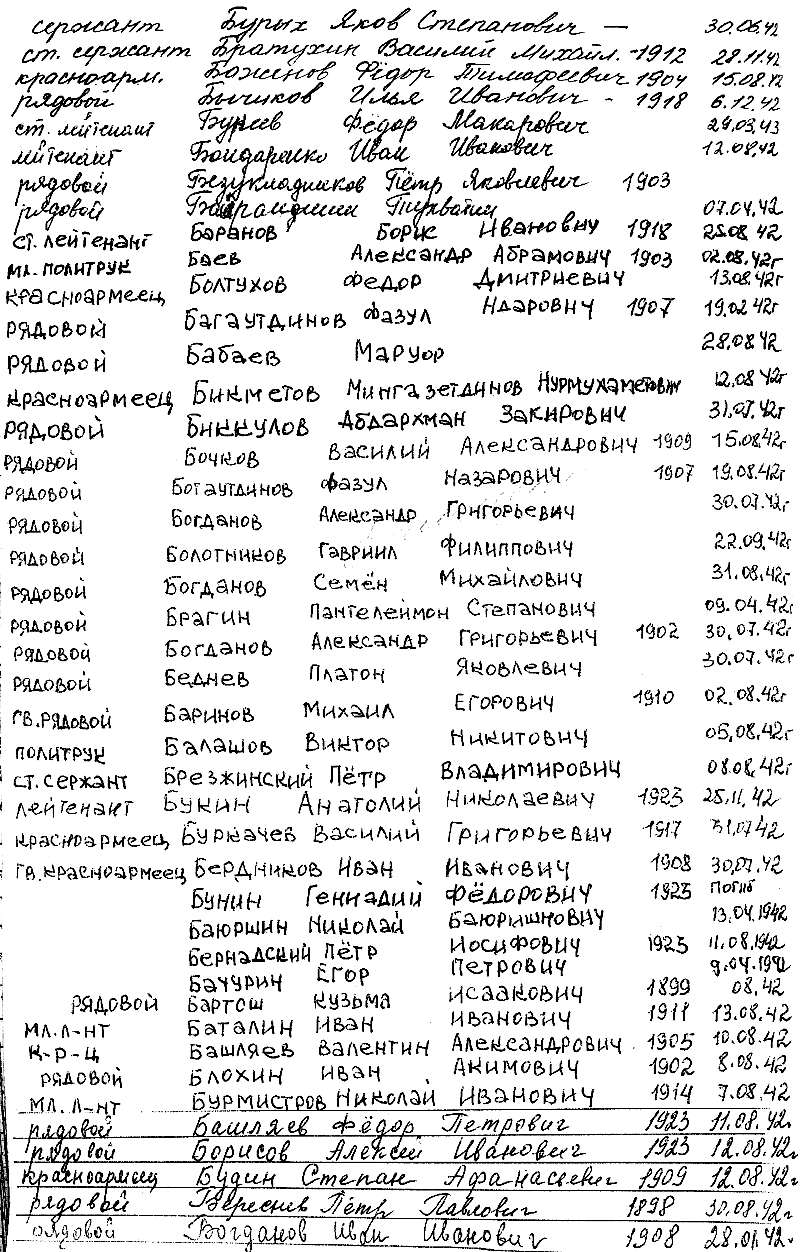 сержант Бурых Яков Степанович — 30.06.42
ст. сержант Братухин Василий Михайл. -1912 28.11.42
красноарм. Боженов Фёдор Тимофеевич 1904 15.08.42
рядовой Бычиков Илья Иванович - 1918 6.12.42
ст. лейтенант Фёдор Макарович 29.03.43
лейтенант Бондаренко Иван Иванович 12.08.42
рядовой Безукладников Пётр Яковлевич 1903
рядовой 07.04.42
ст. лейтенант Баранов Борис Иванович 1918 25.08.42
мл. политрук Баев Александр Абрамович 1903 02.08.42г
красноармеец Болтухов Федор Дмитриевич 13.08.42г
рядовой Багаутдинов Фазул Ндарович 1907 19.02.42г
рядовой Бабаев Маруор 28.08.42
красноармеец Бикметов Мингазетдинов Нурмухаметовж 12.08.42г
рядовой Биккулов Абдархман Закирович 31.07.42г
рядовой Бочков Василий Александрович 1909 15.08.42г
рядовой Богаутдинов Фазул Назарович 1907 19.08.42г
рядовой Богданов Александр Григорьевич 30.07.42г
рядовой Болотников Гавриил Филиппович 22.09.42г
рядовой Богданов Семён Михайлович 31.08.42г
рядовой Брагин Пантелеймон Степанович 09.04.42г
рядовой Богданов Александр Григорьевич 1902 30.07.42г
рядовой Беднев Платон Яковлевич 30.07.42г
гв.рядовой Баринов Михаил Егорович 1910 02.08.42г
политрук Балашов Виктор Никитович 05.08.42г
ст. сержант Брезжинский Пётр Владимирович 08.08.42г
лейтенант Букин Анатолий Николаевич 1923 25.11.42
красноармеец Буркачев Василий Григорьевич 1917 31.07.42
гв.красноармеец Бердников Иван Иванович 1908 30.07.42
Бунин Геннадий Фёдорович 1923 погиб
Баюршин Николай Баюришнович 13.04.1942
Бернадский Пётр Иосифович 1925 11.08.1942
Бачурич Егор Петрович 9.04.1942
рядовой Бартош Кузьма Исаакович 1899 08.42
мл.л-нт Баталин Иван Иванович 1911 13.08.42
к-р-ц Башляев Валентин Александрович 1905 10.08.42
рядовой Блохин Иван Акимович 1902 8.08.42
мл. л-нт Бурмистров Николай Иванович 1914 7.08.42
рядовой Башляев Фёдор Петрович 1923 11.08.42г.
рядовой Борисов Алексей Иванович 1923 12.08.42г.
красноармеец Будин Степан Афанасьевич 1909 12.08.42г
рядовой Вереснев Пётр Павлович 1898 30.08.42г.
рядовой Богданов Иван Иванович 1908 28.01.42г